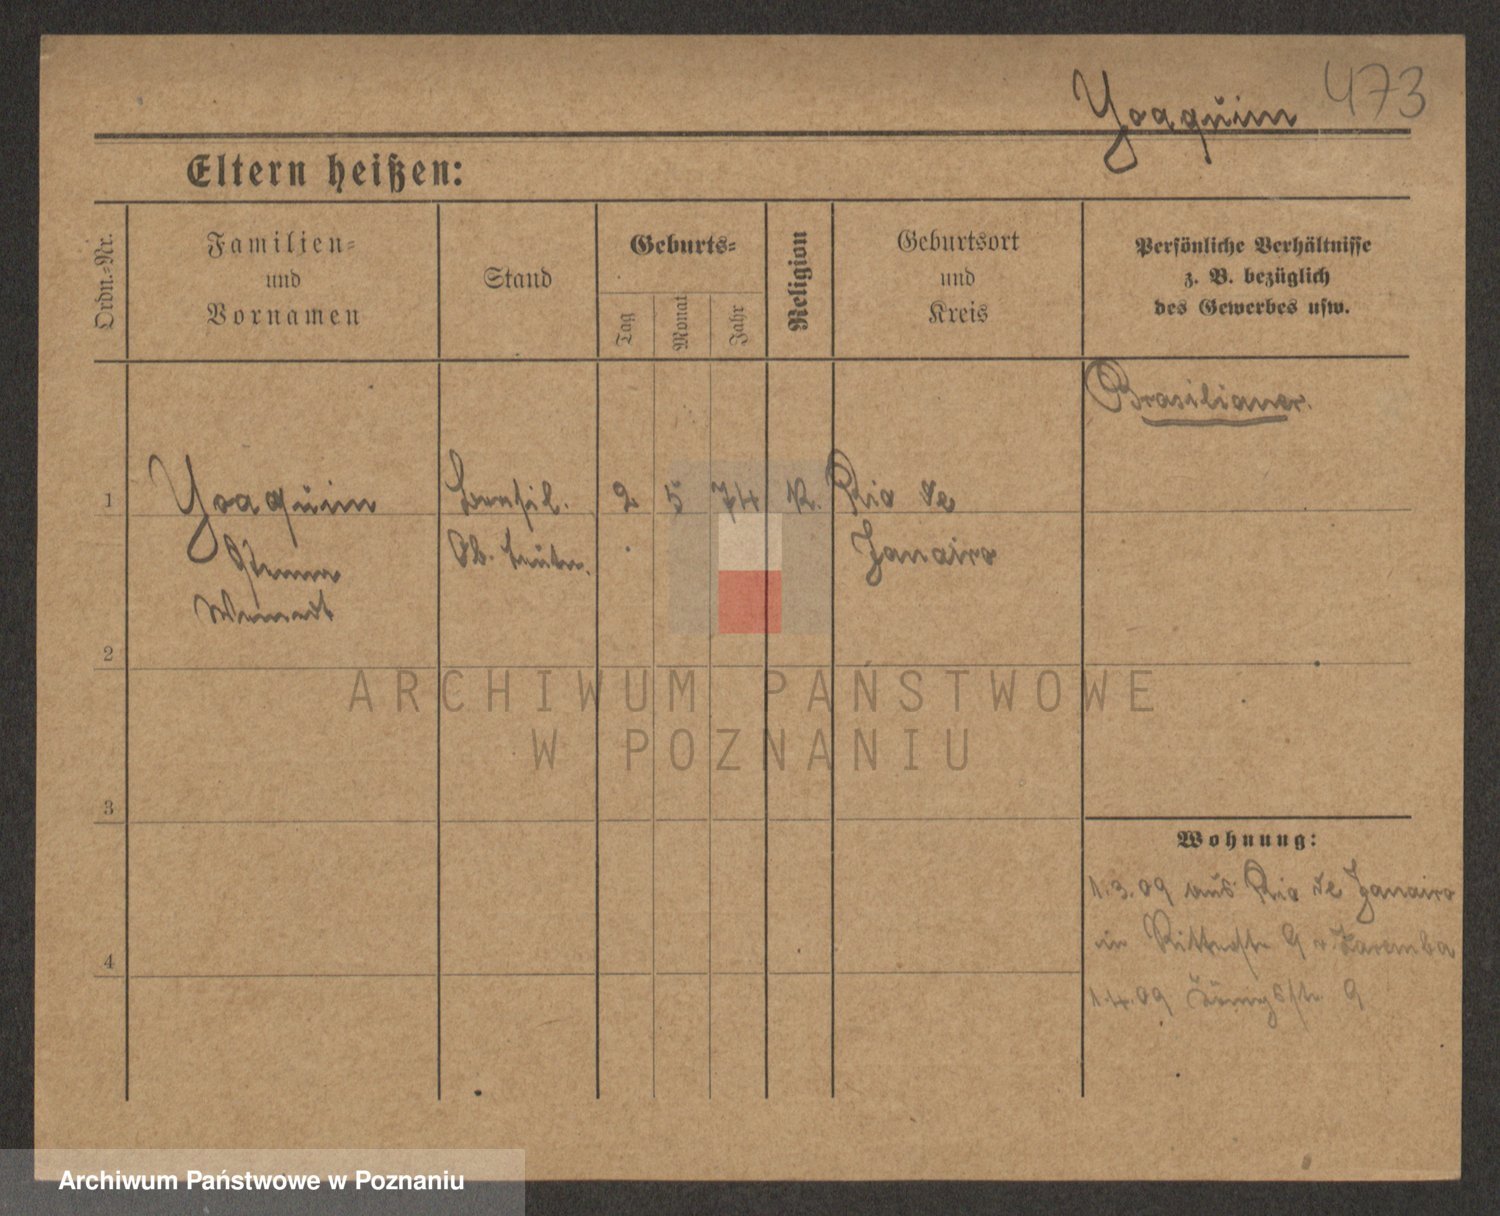 Yoaquim 473
Eltern heißen:
Ordn.=Nr.
Familien=
und
Vornamen
Stand
Geburts=
Tag
Monat
Jahr
Religion
Geburtsort
und
Kreis
Persönliche Verhältnisse
z. B. bezüglich
des Gewerbes usw.
Brasilianer.
1 Yoaquim brasil. 2 5 74 K. Rio de
Ob. Janairo
2
ARCHIWUM PAŃSTWOWE
W POZNANIU
3
Wohnung:
1.3.09 aus Rio de Janairo
in Ritterstr 9 Zaremba
4
1.4.09 Königsstr. 9
Archiwum Państwowe w Poznaniu